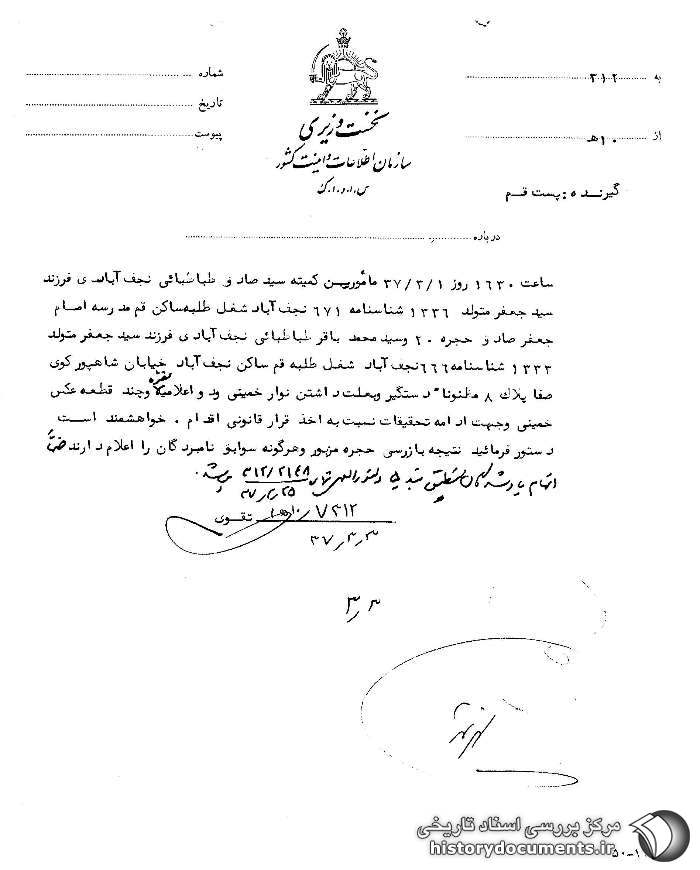 به ۳۱۲
شماره
تاریخ
از ۱۰هـ
پیوست
نخست وزیری
سازمان اطلاعات و امنیت کشور
س.ا.و.ا.ک
گیرنده : پست قم
درباره
ساعت ۱۶۳۰ روز ۳۷/۳/۱ مأمورین کمیته سید صادق طباطبائی نجف آبادی فرزند
سید جعفر متولد ۱۳۳۶ شناسنامه ۶۷۱ نجف آباد شغل طلبه ساکن قم مدرسه امام
جعفر صادق حجره ۲۰ وسید محمد باقر طباطبائی نجف آبادی فرزند سید جعفر متولد
۱۳۳۳ شناسنامه ۶۶۶ نجف آباد شغل طلبه قم ساکن نجف آباد خیابان شاهپور کوی
صفا پلاك ۸ مظنونا" دستگیر وبعلت داشتن نوار خمینی ود و اعلامیه وچند قطعه عکس
خمینی وجهت ادامه تحقیقات نسبت به اخذ قرار قانونی اقدام . خواهشمند است
دستور فرمائید نتیجه بازرسی حجره مزبور وهرگونه سوابق نامبردگان را اعلام دارند
۳۱۲/۲۱۴۸
۳۷/۲/۲۵
۷۳۱۲/۱۰هـ تقوی
۳۷/۳/۳
۳/۳
مرکز بررسی اسناد تاریخی
historydocuments.ir